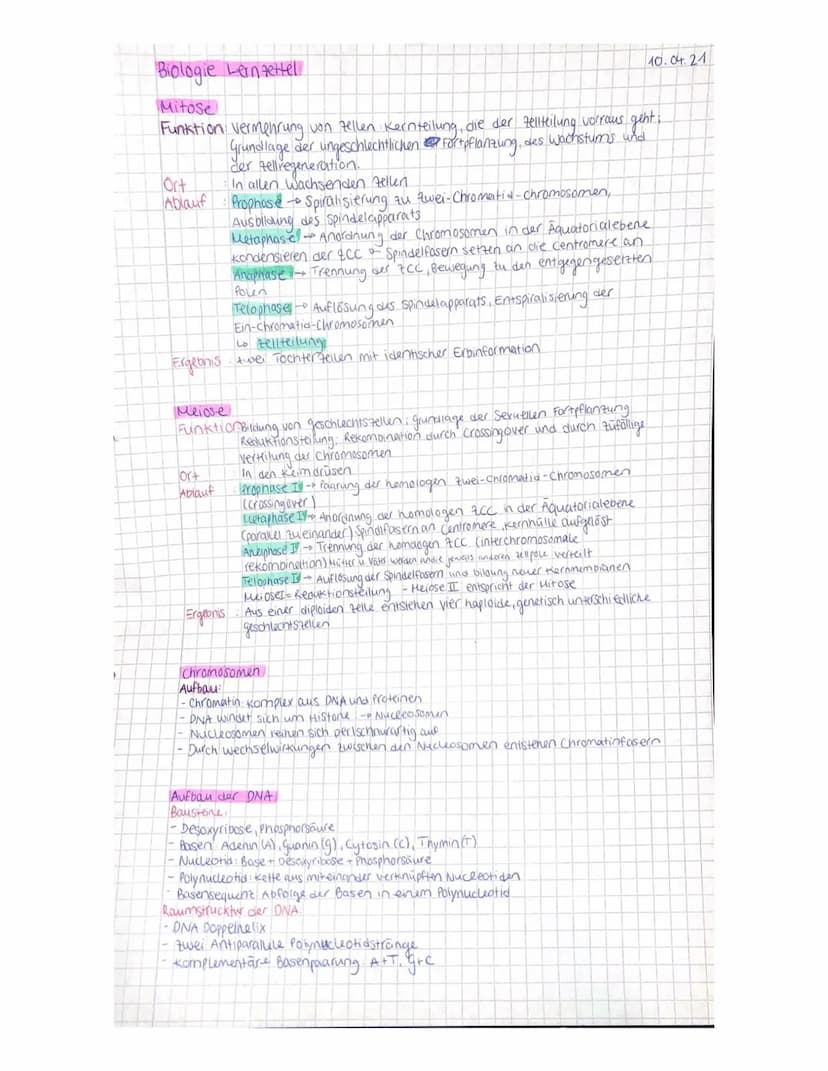 Biologie Lernzettel
10.04.21
Mitose
Funktion: Vermehrung von Zellen. Kernteilung, die der Zellteilung vorraus geht;
Grundlage der ungeschlechtlichen Fortpflanzung, des Wachstums und
der Zellregeneration.
Ort : In allen Wachsenden Zellen
Ablauf : Prophase → Spiralisierung zu Zwei-Chromatid-chromosomen,
Ausbildung des Spindelapparats
Metaphase → Anordnung der Chromosomen in der Äquatorialebene
kondensieren der ZCC Spindelfasern setzen an die Centromere an
Anaphase → Trennung der ZCC, Bewegung zu den entgegengesetzten
Polen
Telophase → Auflösung des Spindelapparats, Entspiralisierung der
Ein-chromatid-Chromosomen
↳ Zellteilung
Ergebnis : zwei Tochterzellen mit identischer Erbinformation
Meiose
Funktion: Bildung von geschlechtszellen; grundlage der Sexuellen Fortpflanzung
Reduktionsteilung; Rekombination durch Crossingover und durch zufällige
Verteilung der Chromosomen
Ort : In den Keimdrüsen
Ablauf : Prophase I → Paarung der homologen Zwei-Chromatid-Chromosomen
(Crossingover)
Metaphase I → Anordnung der homologen ZCC in der Äquatorialebene
(parallel zueinander) Spindlfasern an Centromere, Kernhülle aufgelöst
I → Trennung der homologen ZCC (interchromosomale
rekombination) Mütter u. Väter werden in die jeweils anderen Zellpole verteilt
Telophase I → Auflösung der Spindelfasern und bildung neuer Kernmembranen
Meiose I = Reduktionsteilung - Meiose II entspricht der Mitose
Ergebnis : Aus einer diploiden Zelle entstehen vier haploide, genetisch unterschiedliche
geschlechtszellen
Chromosomen
Aufbau:
- Chromatin: Komplex aus DNA und Proteinen
- DNA windet sich um Histone → Nucleosomen
- Nucleosomen reihen sich perlschnurartig auf
- Durch wechselwirkungen zwischen den Nucleosomen entstehen Chromatinfasern
Aufbau der DNA
Bausteine:
- Desoxyribose, Phosphorsäure
- Basen: Adenin (A), Guanin (G), Cytosin (C), Thymin (T)
- Nucleotid: Base + Desoxyribose + Phosphorsäure
- Polynucleotid: Kette aus miteinander verknüpften Nucleotiden
- Basensequenz: Abfolge der Basen in einem Polynucleotid
Raumstrucktur der DNA
- DNA Doppelhelix
- Zwei Antiparallele Polynucleotidstränge
- Komplementäre Basenpaarung A+T, G+C